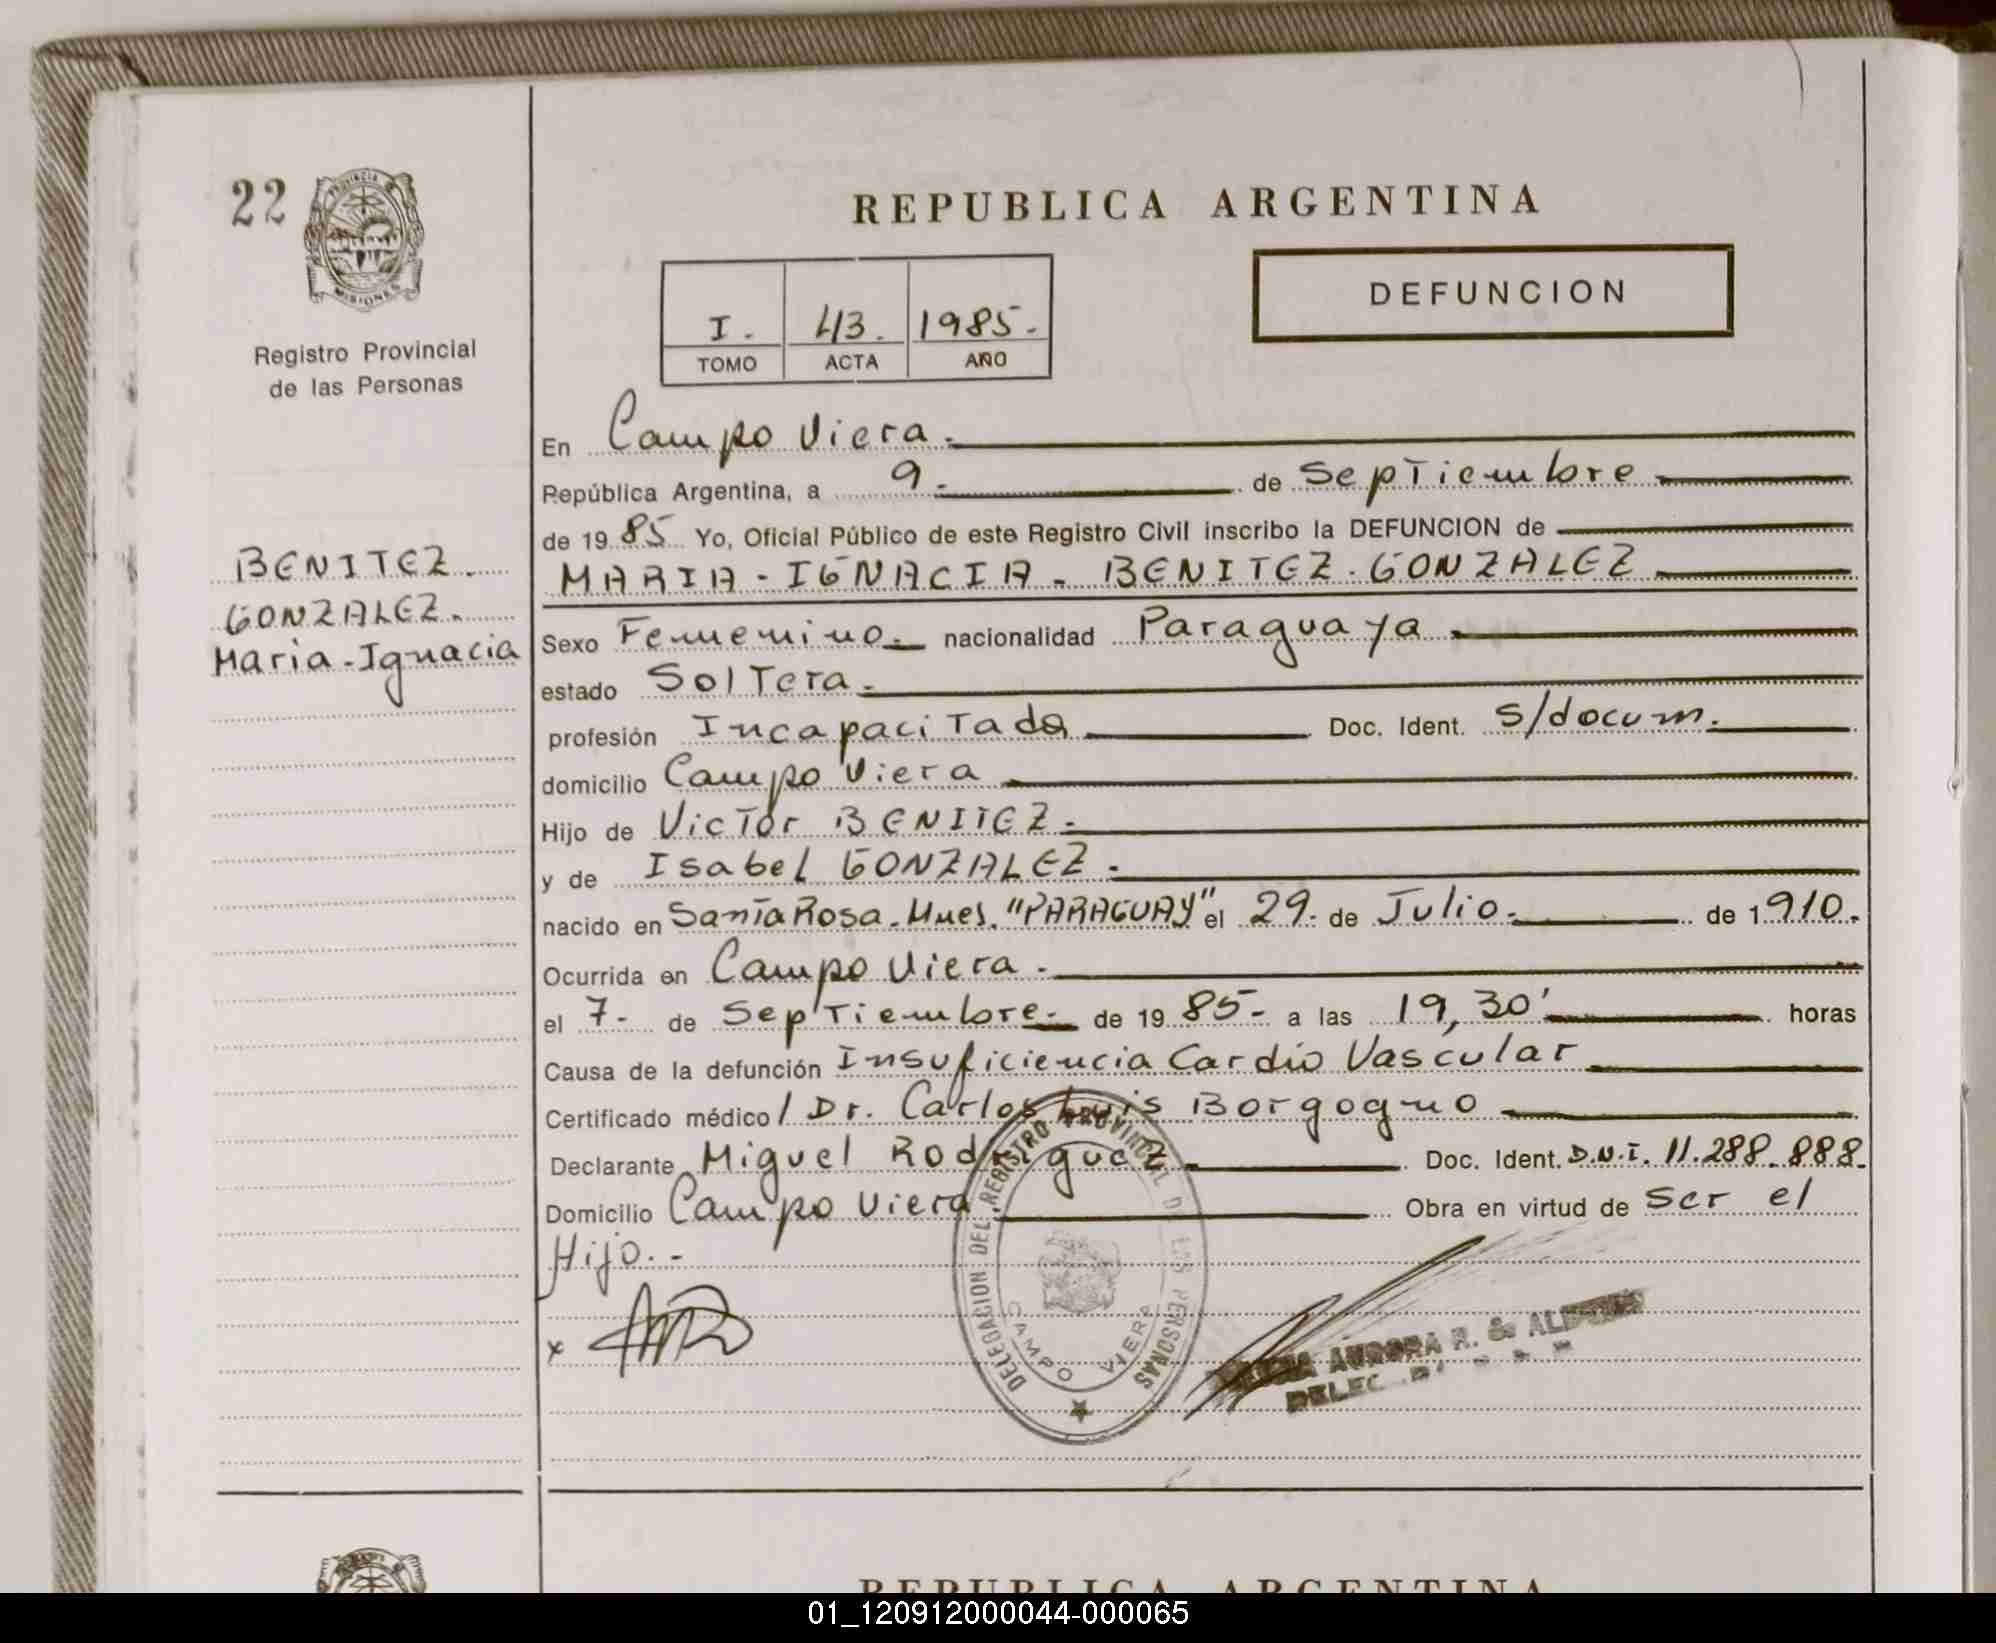 22
PROVINCIA DE
MISIONES
Registro Provincial
de las Personas
BENITEZ.
GONZALEZ.
Maria-Ignacia
REPUBLICA ARGENTINA
I. 43. 1985.
TOMO ACTA AÑO
DEFUNCION
En Campo Viera.
República Argentina, a 9. de Septiembre
de 1985 Yo, Oficial Público de este Registro Civil inscribo la DEFUNCION de
MARIA - IGNACIA - BENITEZ - GONZALEZ
Sexo Femenino. nacionalidad Paraguaya
estado Soltera.
profesión Incapacitada Doc. Ident. S/docum.
domicilio Campo Viera
Hijo de Victor BENITEZ.
y de Isabel GONZALEZ.
nacido en Santa Rosa. Mnes. "PARAGUAY" el 29. de Julio. de 1910.
Ocurrida en Campo Viera.
el 7. de Septiembre. de 1985. a las 19,30' horas
Causa de la defunción Insuficiencia Cardio Vascular
Certificado médico / Dr. Carlos Luis Borgogno
Declarante Miguel Rodriguez Doc. Ident. D.N.I. 11.288.888.
Domicilio Campo Viera Obra en virtud de Ser el
Hijo.-
x
DELEGACION DEL REGISTRO PROVINCIAL DE LAS PERSONAS
CAMPO VIERA
AURORA R. de
REPUBLICA ARGENTINA
01_120912000044-000065